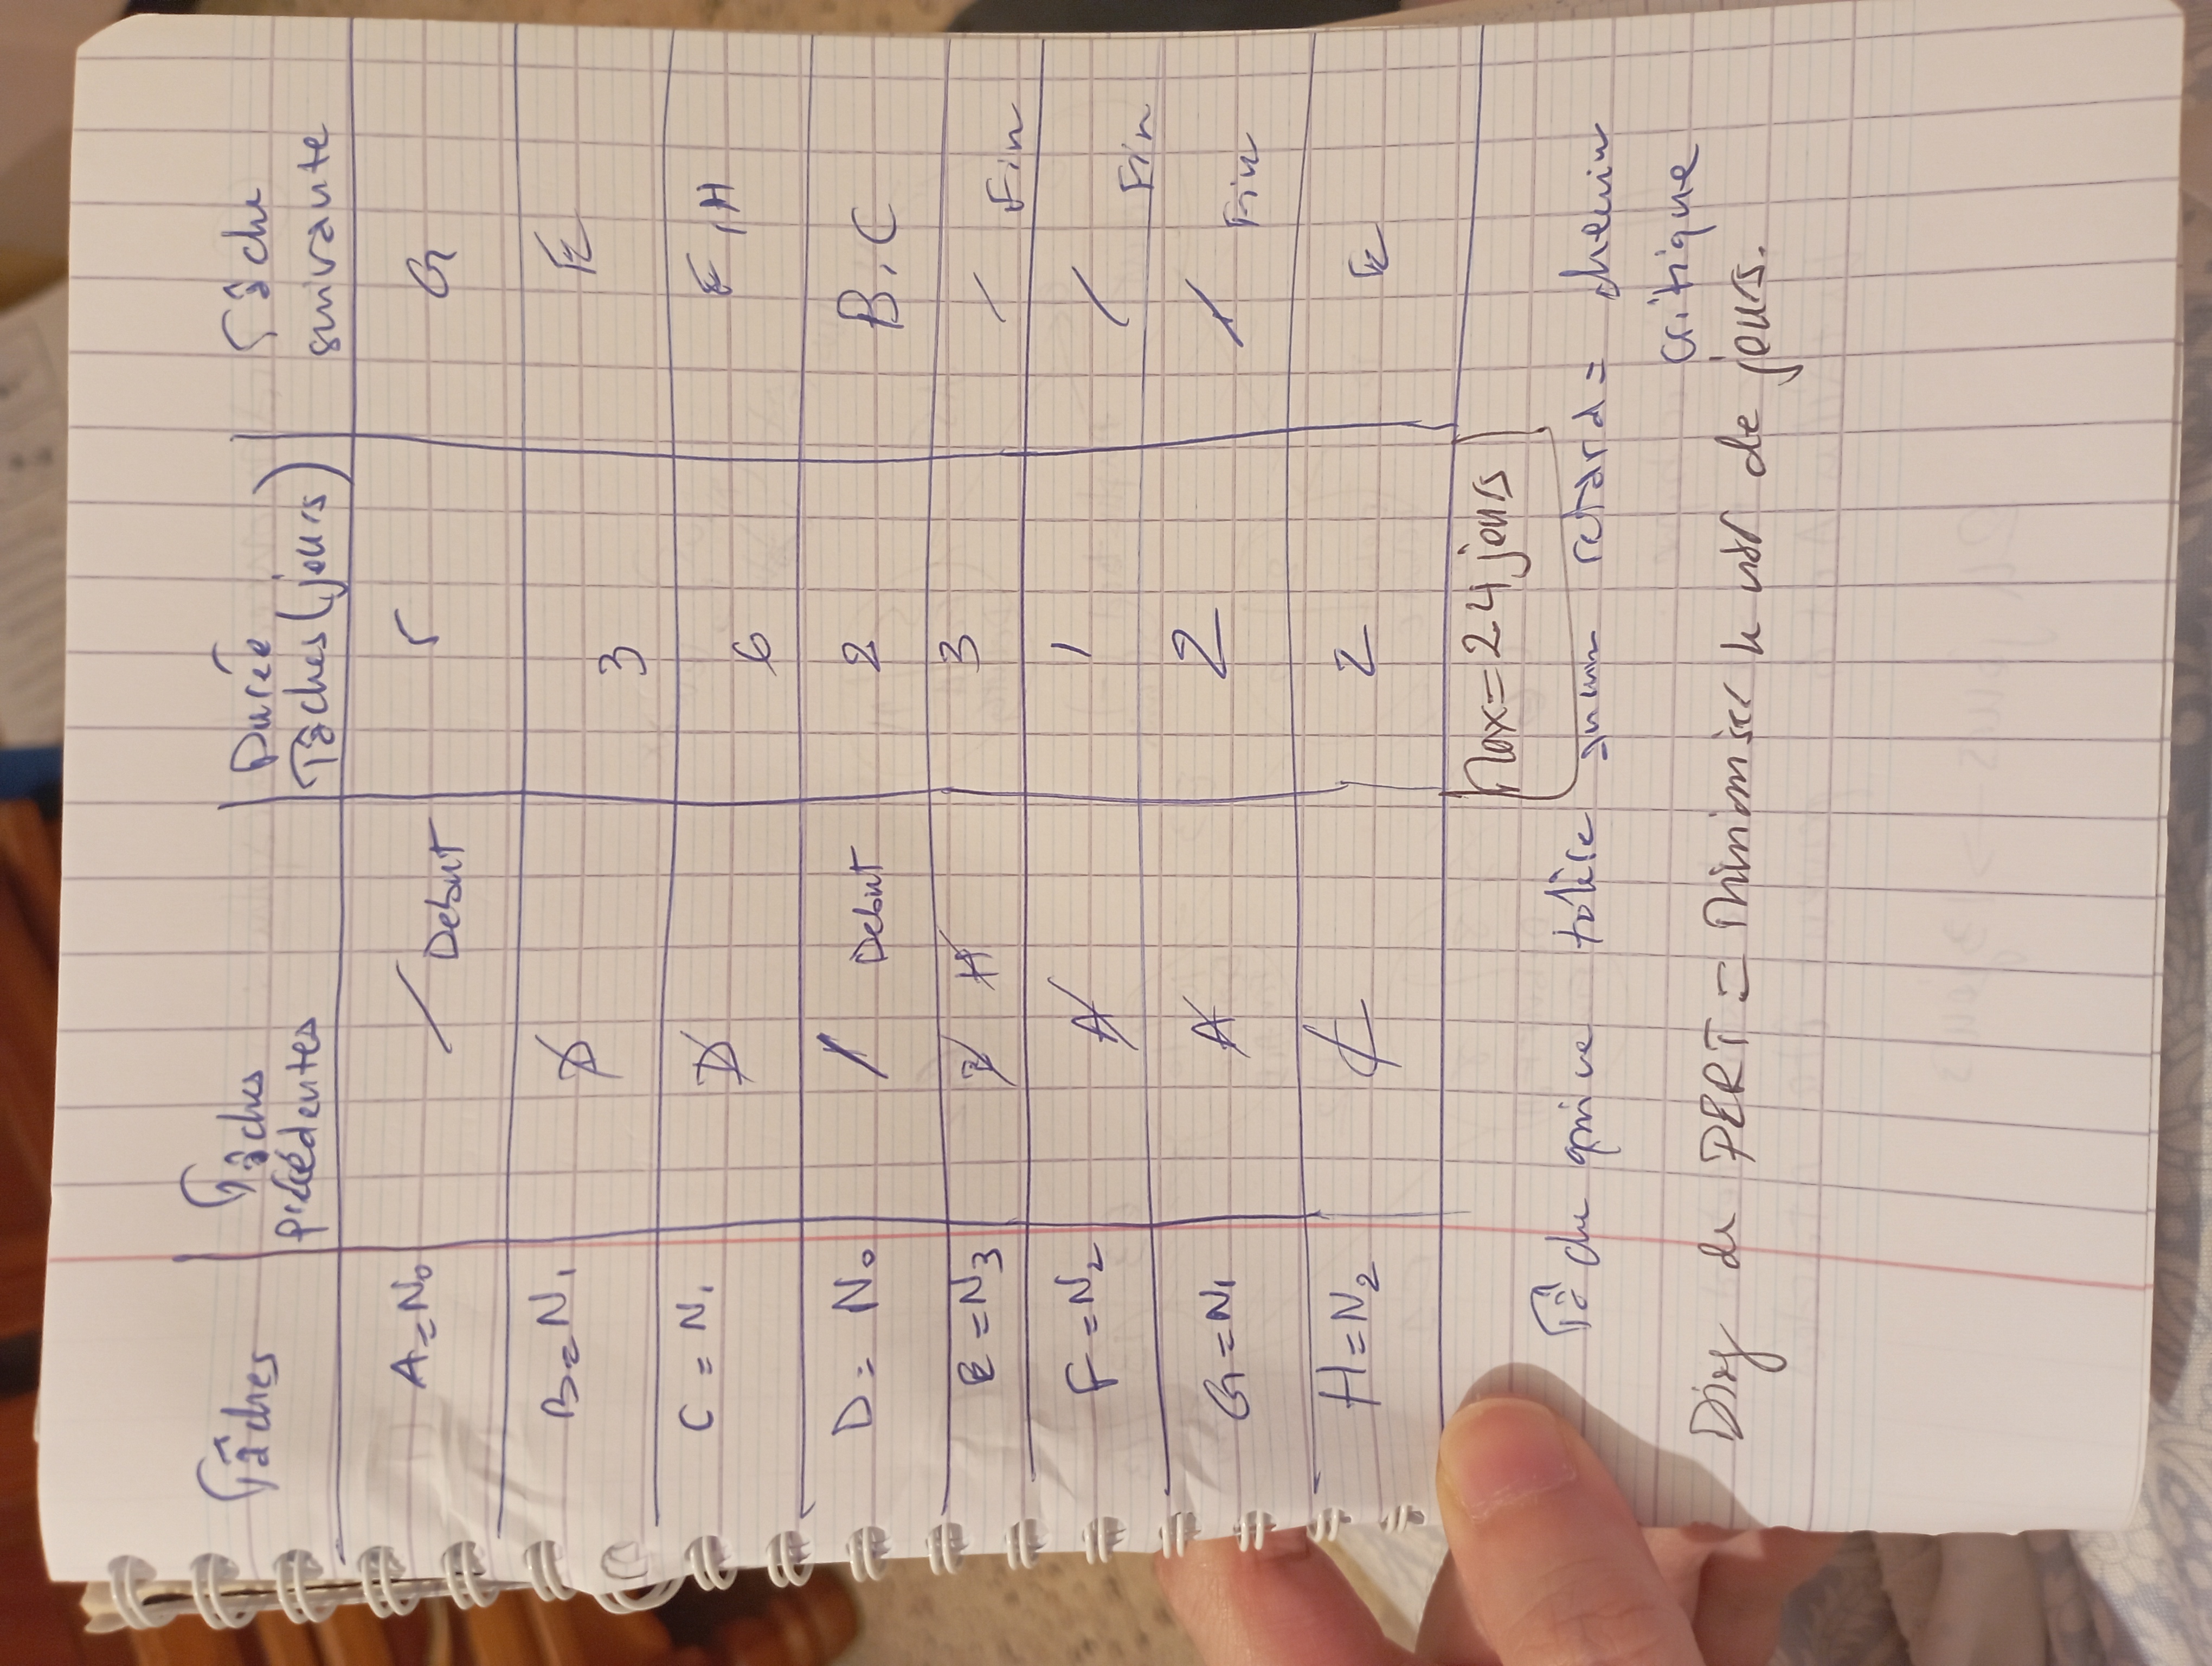 Tâches Tâches précédentes Durée Tâches (jours) Tâche suivante
A = N0 / Debut 5 G
B = N1 D 3 E
C = N1 D 6 F, H
D = N0 / Debut 2 B, C
E = N3 B H 3 / Fin
F = N2 A 1 / Fin
G = N1 A 2 / Fin
H = N2 C 2 E
Max = 24 jours
Tâche qui ne tolère aucun retard = chemin
critique
Diag de PERT = Minimiser le nbr de jours.
24 jours -> 13 jours